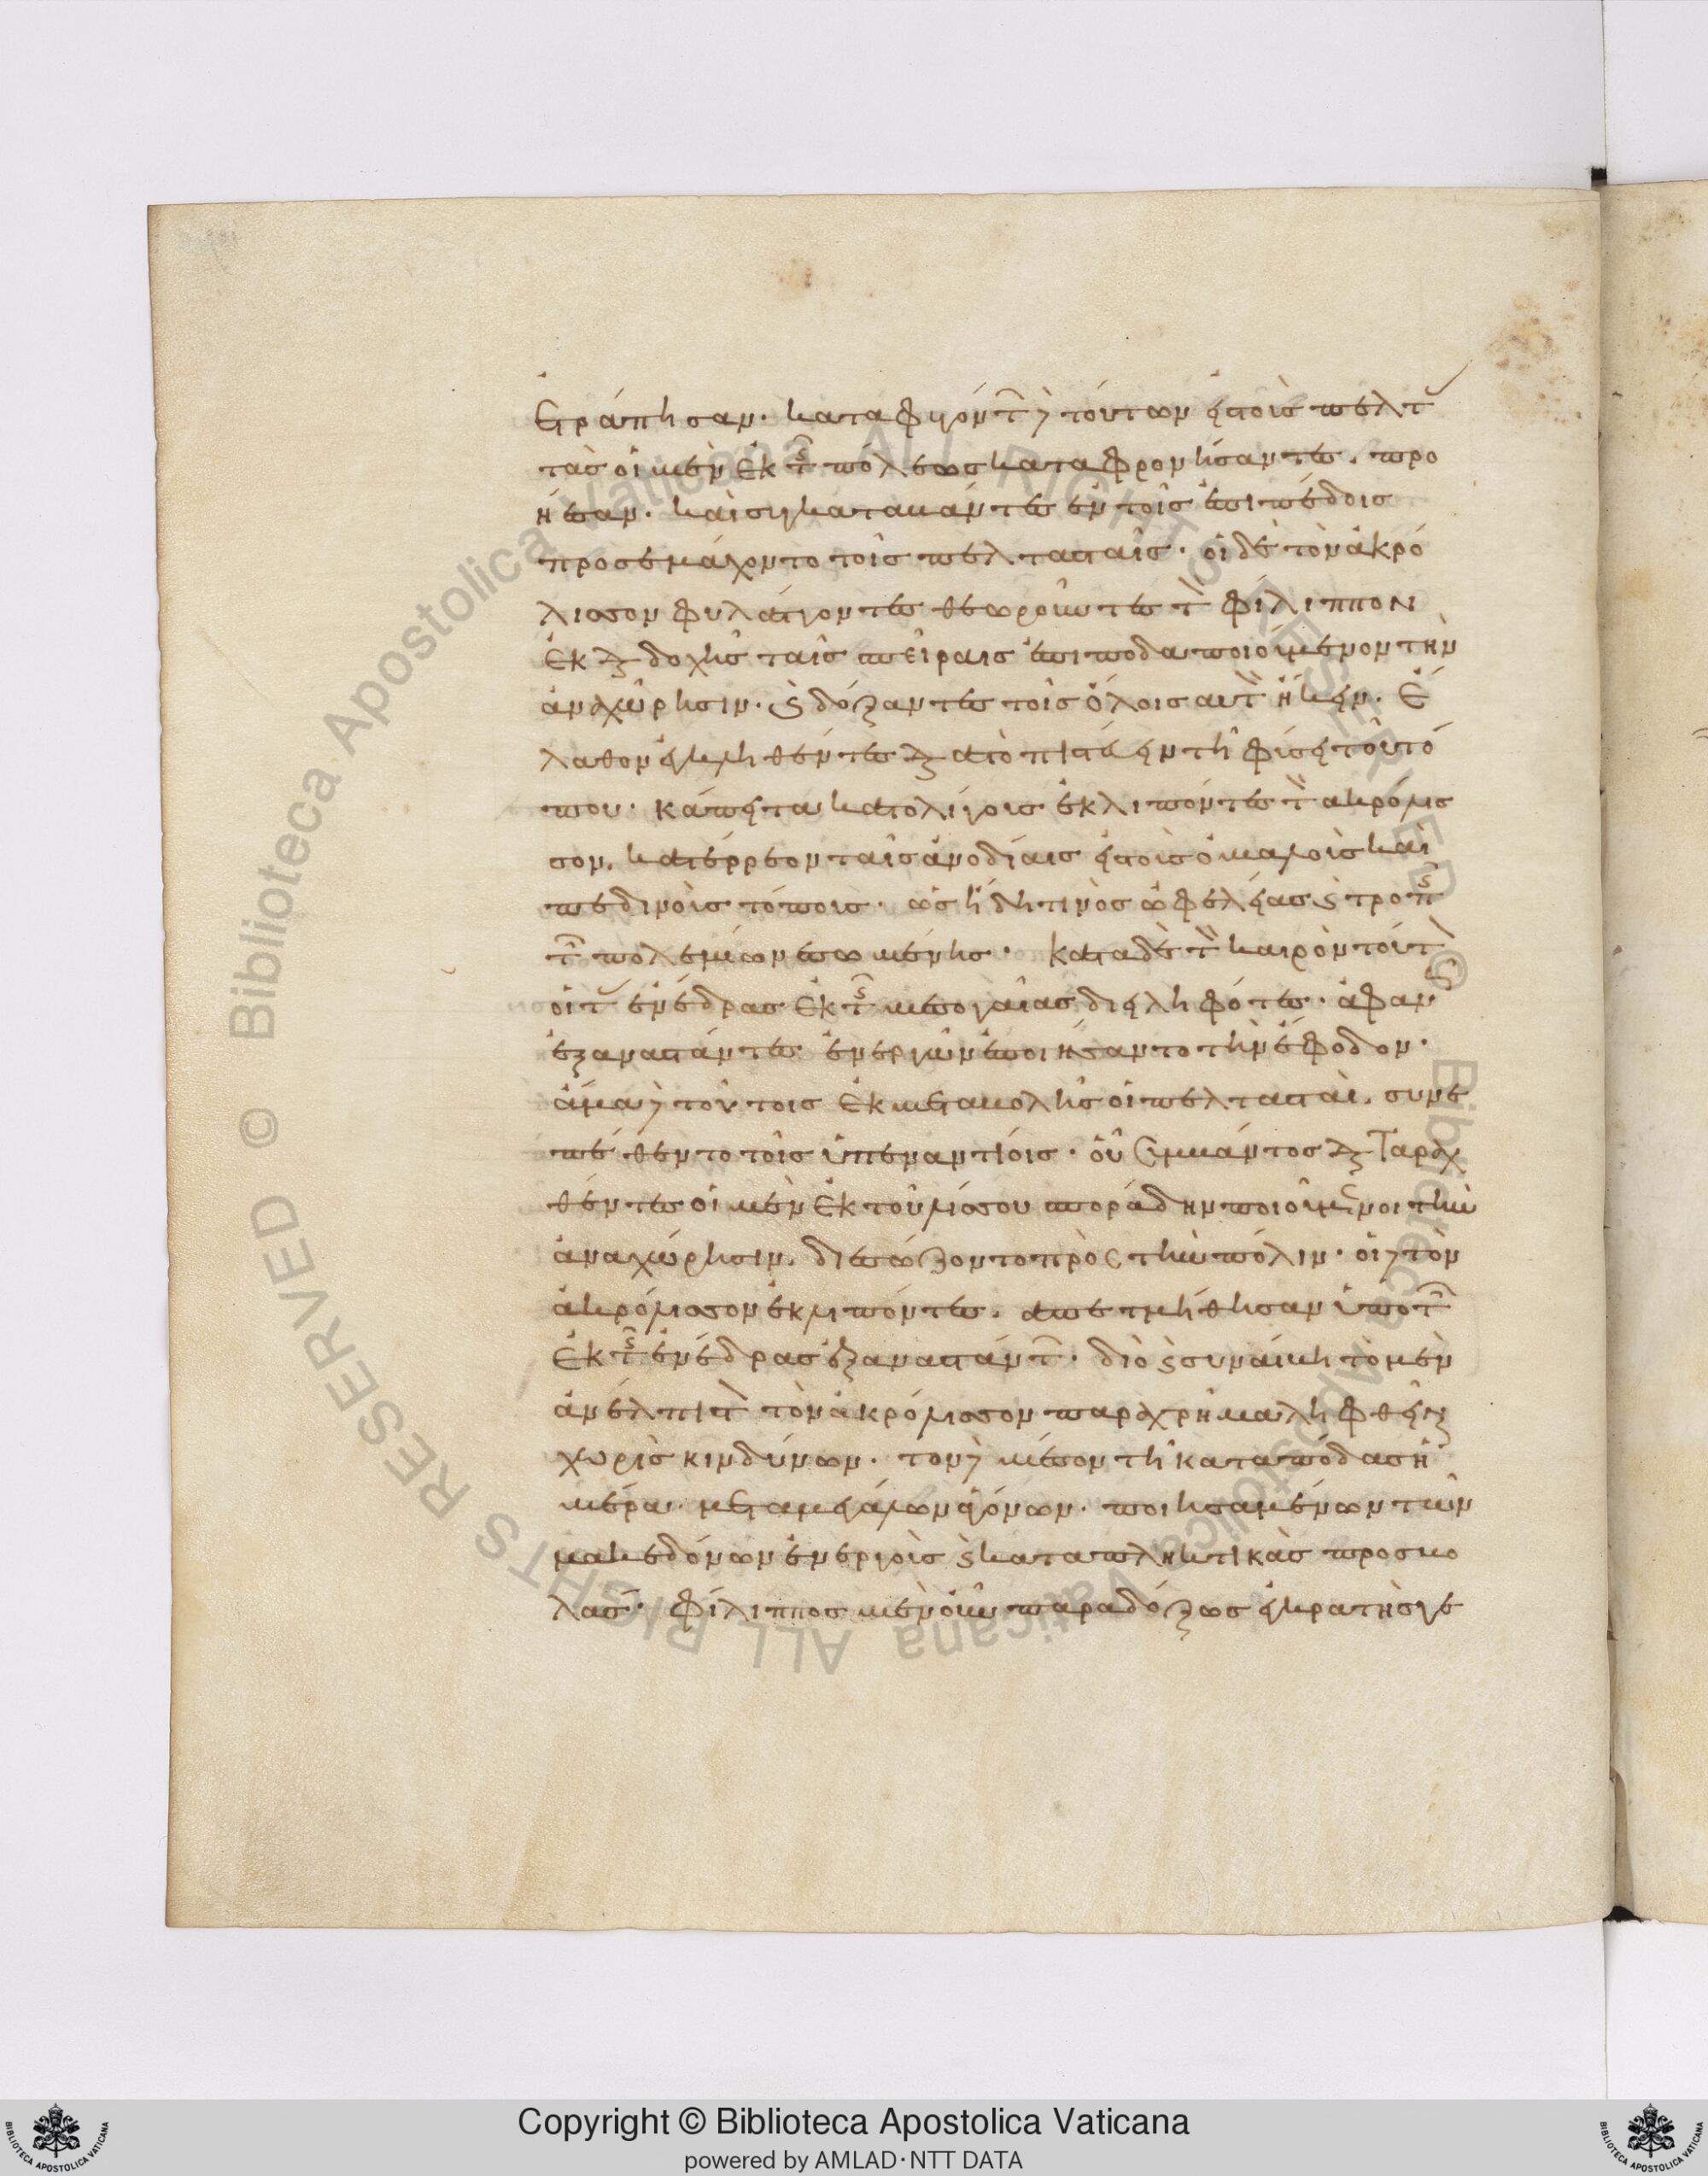 ἐτράπησαν· καταφυγόντων δὲ τούτων εἰς τοὺς πελτα
στὰς οἱ μὲν ἐκ τῆς πόλεως καταφρονήσαντες, προ
ῄεσαν· καὶ συγκαταβάντες ἐν τοῖς ἐπιπέδοις
προσεμάχοντο τοῖς πελτασταῖς· οἱ δὲ τὸν ἀκρό
λισσον φυλάττοντες θεωροῦντες τὸν φίλιππον
ἐκ διαδοχῆς ταῖς σπείραις ἐπὶ πόδα ποιούμενον τὴν
ἀναχώρησιν· καὶ δόξαντες τοῖς ὅλοις αὐτὸν εἴκειν· ἔ
λαθον ἐκκληθέντες διὰ τὸ πιστεύειν τῇ φύσει τοῦ τό
που· κἄπειτα κατ' ὀλίγους ἐκλιπόντες τὸν ἀκρόλισ
σον, κατέρρεον ταῖς ἀνοδίαις εἰς τοὺς ὁμαλοὺς καὶ
πεδινοὺς τόπους· ὡς ἤδη τινὸς ὠφελείας καὶ τροπῆς
τῶν πολεμίων ἐσομένης· κατὰ δὲ τὸν καιρὸν τοῦτον
οἱ τὰς ἐνέδρας ἐκ τῆς μεσογαίας διειληφότες· ἀφανῶς
ἐξαναστάντες ἐνεργῶν ἐποιήσαντο τὴν ἔφοδον·
ἅμα δὲ τούτοις ἐκ μεταβολῆς οἱ πελτασταὶ, συνε
πέθεντο τοῖς ὑπεναντίοις· οὗ συμβάντος διαταραχ
θέντες οἱ μὲν ἐκ τοῦ λίσσου σποράδην ποιούμενοι τὴν
ἀναχώρησιν, διεσώζοντο πρὸς τὴν πόλιν· οἱ δὲ τὸν
ἀκρόλισσον ἐκλιπόντες, ἀπετμήθησαν ὑπὸ τῶν
ἐκ τῆς ἐνέδρας ἐξαναστάντων· διὸ καὶ συνέβη τὸ μὲν
ἀνέλπιστον τὸν ἀκρόλισσον παραχρῆμα ληφθῆναι
χωρὶς κινδύνων· τὸν δὲ λίσσον τῇ κατὰ πόδας ἡ
μέρα· μετὰ μεγάλων ἀγώνων· ποιησαμένων τῶν
μακεδόνων ἐνεργοὺς καὶ καταπληκτικὰς προσβο
λάς· φίλιππος μὲν οὖν παραδόξως ἐγκρατὴς γε
Copyright © Biblioteca Apostolica Vaticana
powered by AMLAD·NTT DATA